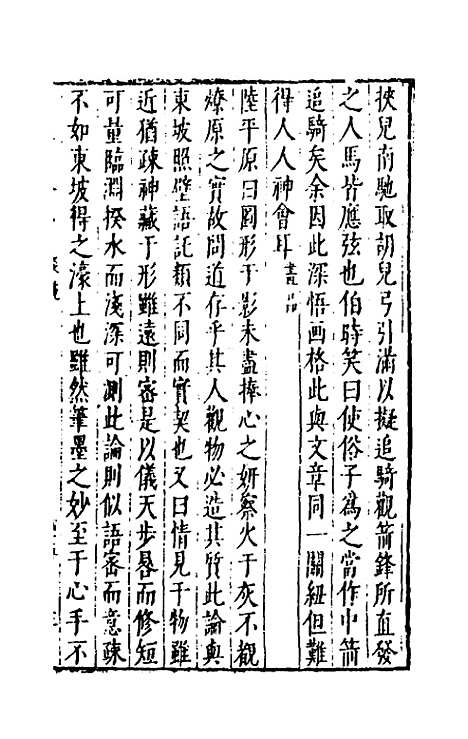 挾兒南馳取胡兒弓引滿以擬追騎觀箭鋒所直發
之人馬皆應弦也伯時笑曰使俗子為之當作中箭
追騎矣余因此深悟画格此與文章同一關紐但難
得人人神會耳畫品
陸平原曰圖形于影未盡捧心之妍察火于灰不觀
燎原之實故問道存乎其人觀物必造其質此論與
東坡照壁語託類不同而實契也又曰情見于物雖
近猶疎神藏于形雖遠則審是以儀天步晷而修短
可量臨淵揆水而淺深可測此論則似語審而意疎
不如東坡得之濠上也雖然筆墨之妙至于心手不